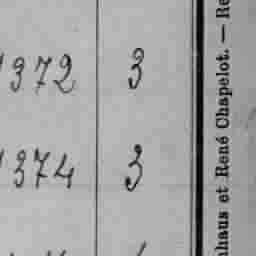 1372 3
1374 3
nhaus et René Chapelot. — Re